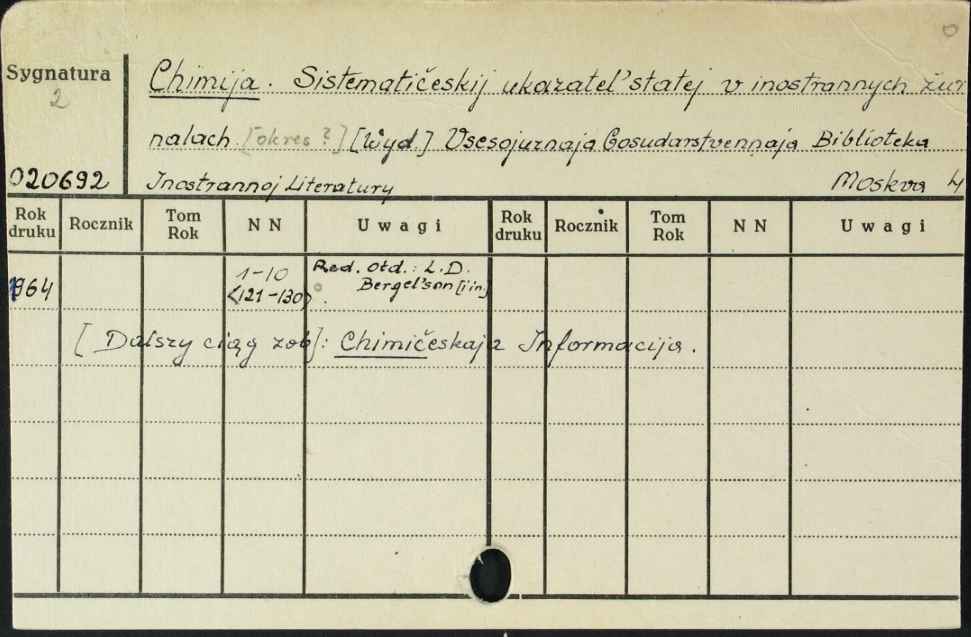 Sygnatura
2
020692
Chimija. Sistematičeskij ukazatel' statej v inostrannych žur
nalach [okres?] [Wyd.] Vsesojuznaja Gosudarstvennaja Biblioteka
Inostrannoj Literatury Moskva 4
Rok druku Rocznik Tom Rok N N Uwagi Rok druku Rocznik Tom Rok N N Uwagi
1964 1-10 Red. otd.: L.D.
<121-130> Bergel'son [i in]
[Dalszy ciąg zob]: Chimičeskaja Informacija.